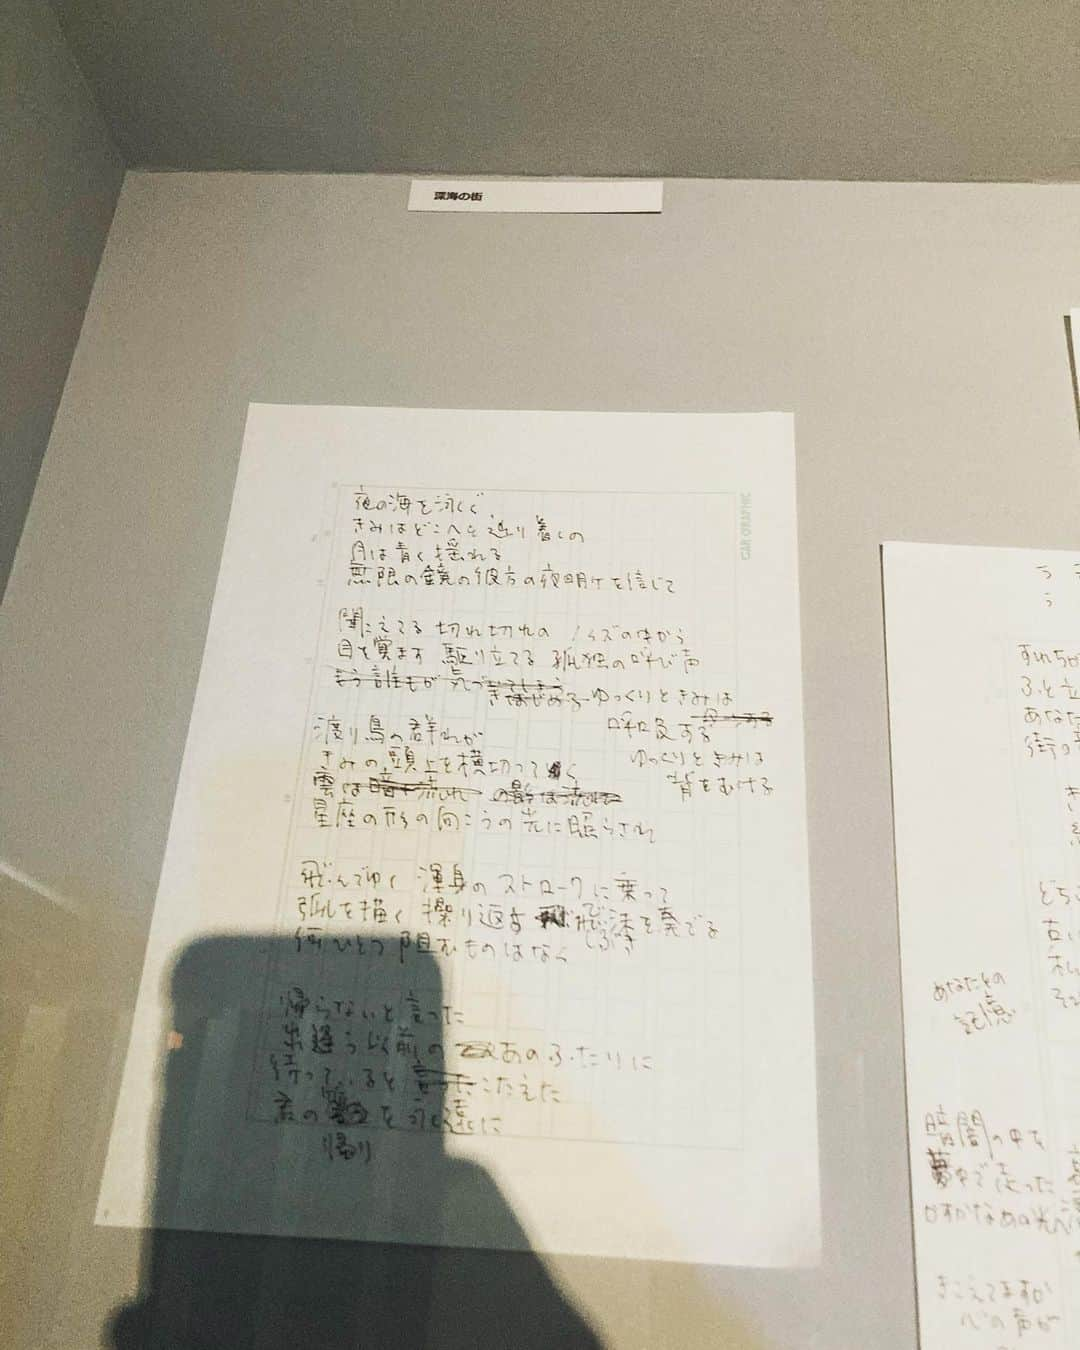 深海の街
CAR GRAPHIC
夜の海を泳ぐ
きみはどこへと辿り着くの
月は青く揺れる
無限の鏡の彼方の夜明けを信じて
聞こえてる 切れ切れの ノイズの中から
目を覚ます 駆り立てる 孤独の呼び声
もう誰もが気づ
ゆっくりときみは
呼吸する
渡り鳥の群れが
ゆっくりときみは
きみの頭上を横切ってゆく
背をむける
雲は暗く流れ の影は流れ
星座の形の向こうの光に照らされ
飛んでゆく 渾身のストロークに乗って
弧を描く 繰り返す 飛沫を奏でる
しぶき
何ひとつ 阻むものはなく
帰らないと言った
出逢う以前の あのふたりに
待っていると 言った こたえた
君の を永遠に
帰り
すれちが
ふと立
あなた
街の
どちら
あなたとの
記憶
暗闇の中を
夢中で走った
かすかなあの光へ
きこえてますか
心の声が